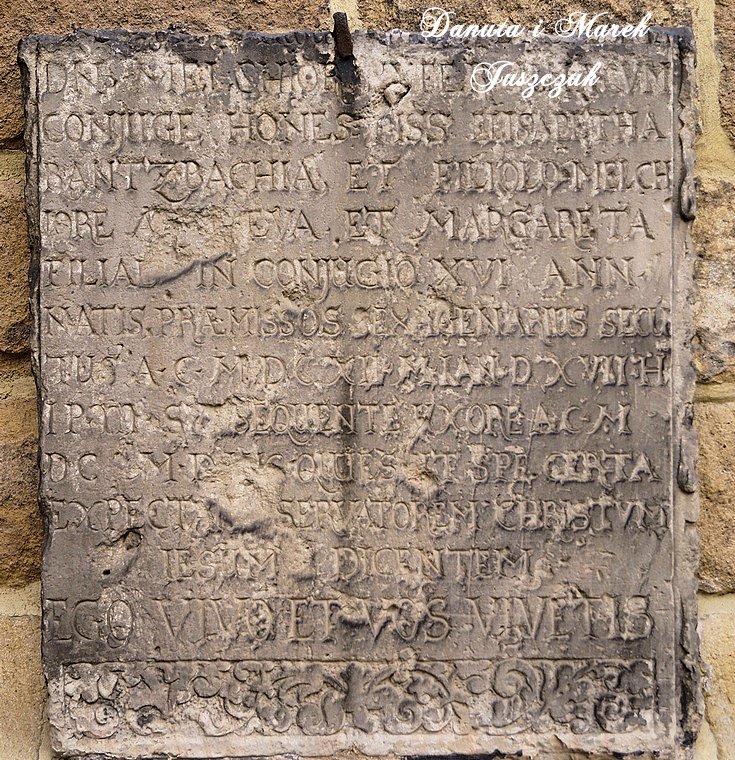 Danuta i Marek
Juszczak
DNS MELCHIOR
CONJUGE HONESTISS ELISABETHA
BANTZBACHIA, ET FILIOLO MELCH
IORE EVA ET MARGARETA
FILIAB IN CONJUGIO XVI ANN
NATIS PRÆMISSOS SEXAGENARIUS SECU
TUS A C M DCXII M IAN D XVIII H
SUBSEQUENTE VXORE A C M
DC ET SPE CERTA
EXPECTAT SERVATOREM CHRISTVM
IESUM DICENTEM
EGO VIVO ET VOS VIVETIS